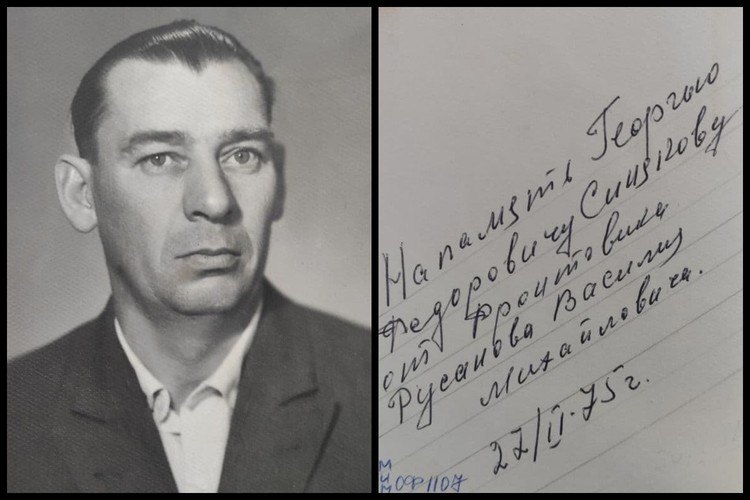 На память Георгию
Федоровичу Синцкову
от Фронтовика
Русанова Василия
Михайловича.
27/II-75 г.
МИМ ОФ 1107